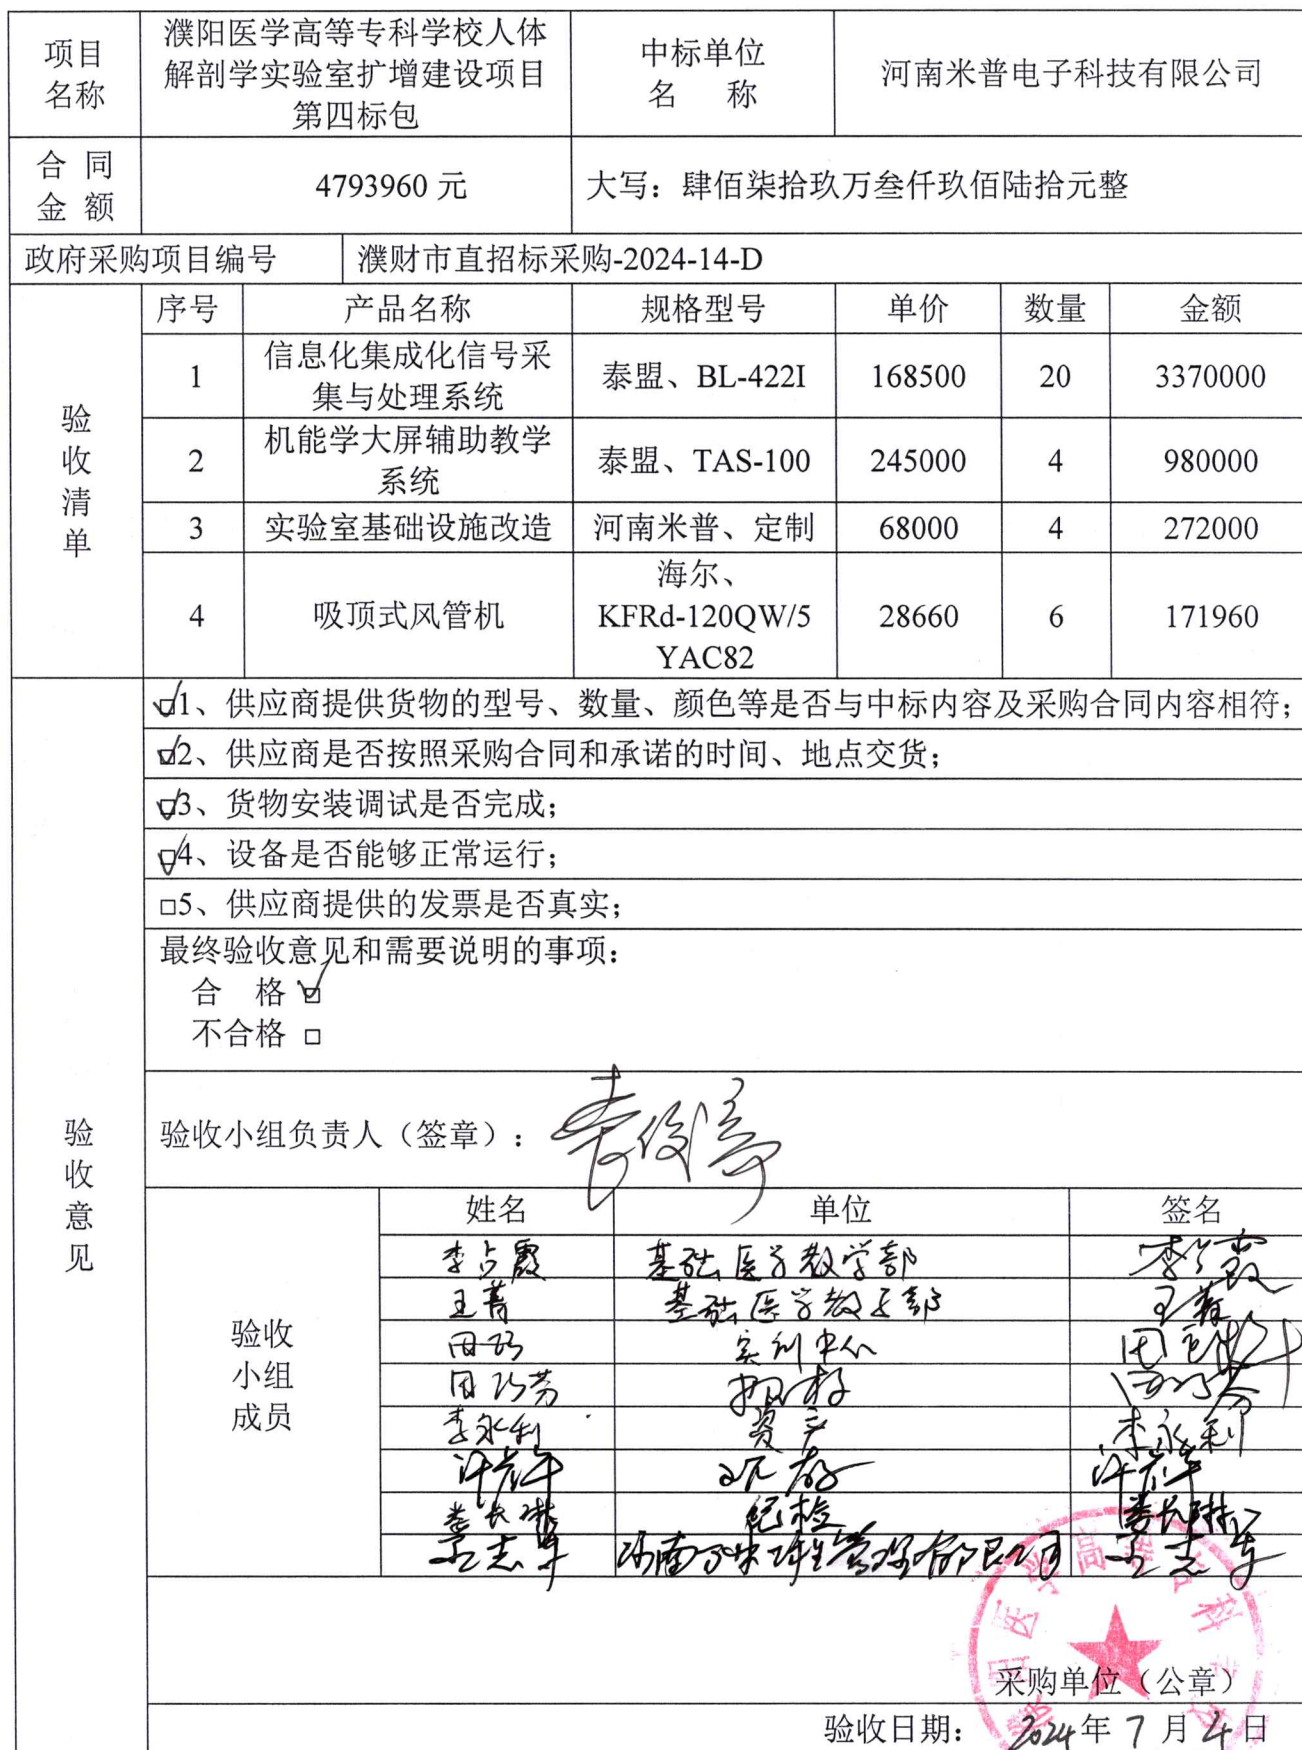 项目名称
濮阳医学高等专科学校人体
解剖学实验室扩增建设项目
第四标包
中标单位
名 称
河南米普电子科技有限公司
合 同
金 额
4793960 元
大写：肆佰柒拾玖万叁仟玖佰陆拾元整
政府采购项目编号
濮财市直招标采购-2024-14-D
验收清单
序号 产品名称 规格型号 单价 数量 金额
1 信息化集成化信号采集与处理系统 泰盟、BL-422I 168500 20 3370000
2 机能学大屏辅助教学系统 泰盟、TAS-100 245000 4 980000
3 实验室基础设施改造 河南米普、定制 68000 4 272000
4 吸顶式风管机 海尔、KFRd-120QW/5YAC82 28660 6 171960
验收意见
☑1、供应商提供货物的型号、数量、颜色等是否与中标内容及采购合同内容相符；
☑2、供应商是否按照采购合同和承诺的时间、地点交货；
☑3、货物安装调试是否完成；
☑4、设备是否能够正常运行；
□5、供应商提供的发票是否真实；
最终验收意见和需要说明的事项：
合 格 ☑
不合格 □
验收小组负责人（签章）：
验收小组成员
姓名 单位 签名
李占霞 基础医学教学部 李占霞
王菁 基础医学教学部 王菁
田巧 实训中心
田巧芳
李永利 资产 李永利
纪检
王志军 河南 管理有限公司 王志军
采购单位（公章）
验收日期： 2024年 7 月 4 日